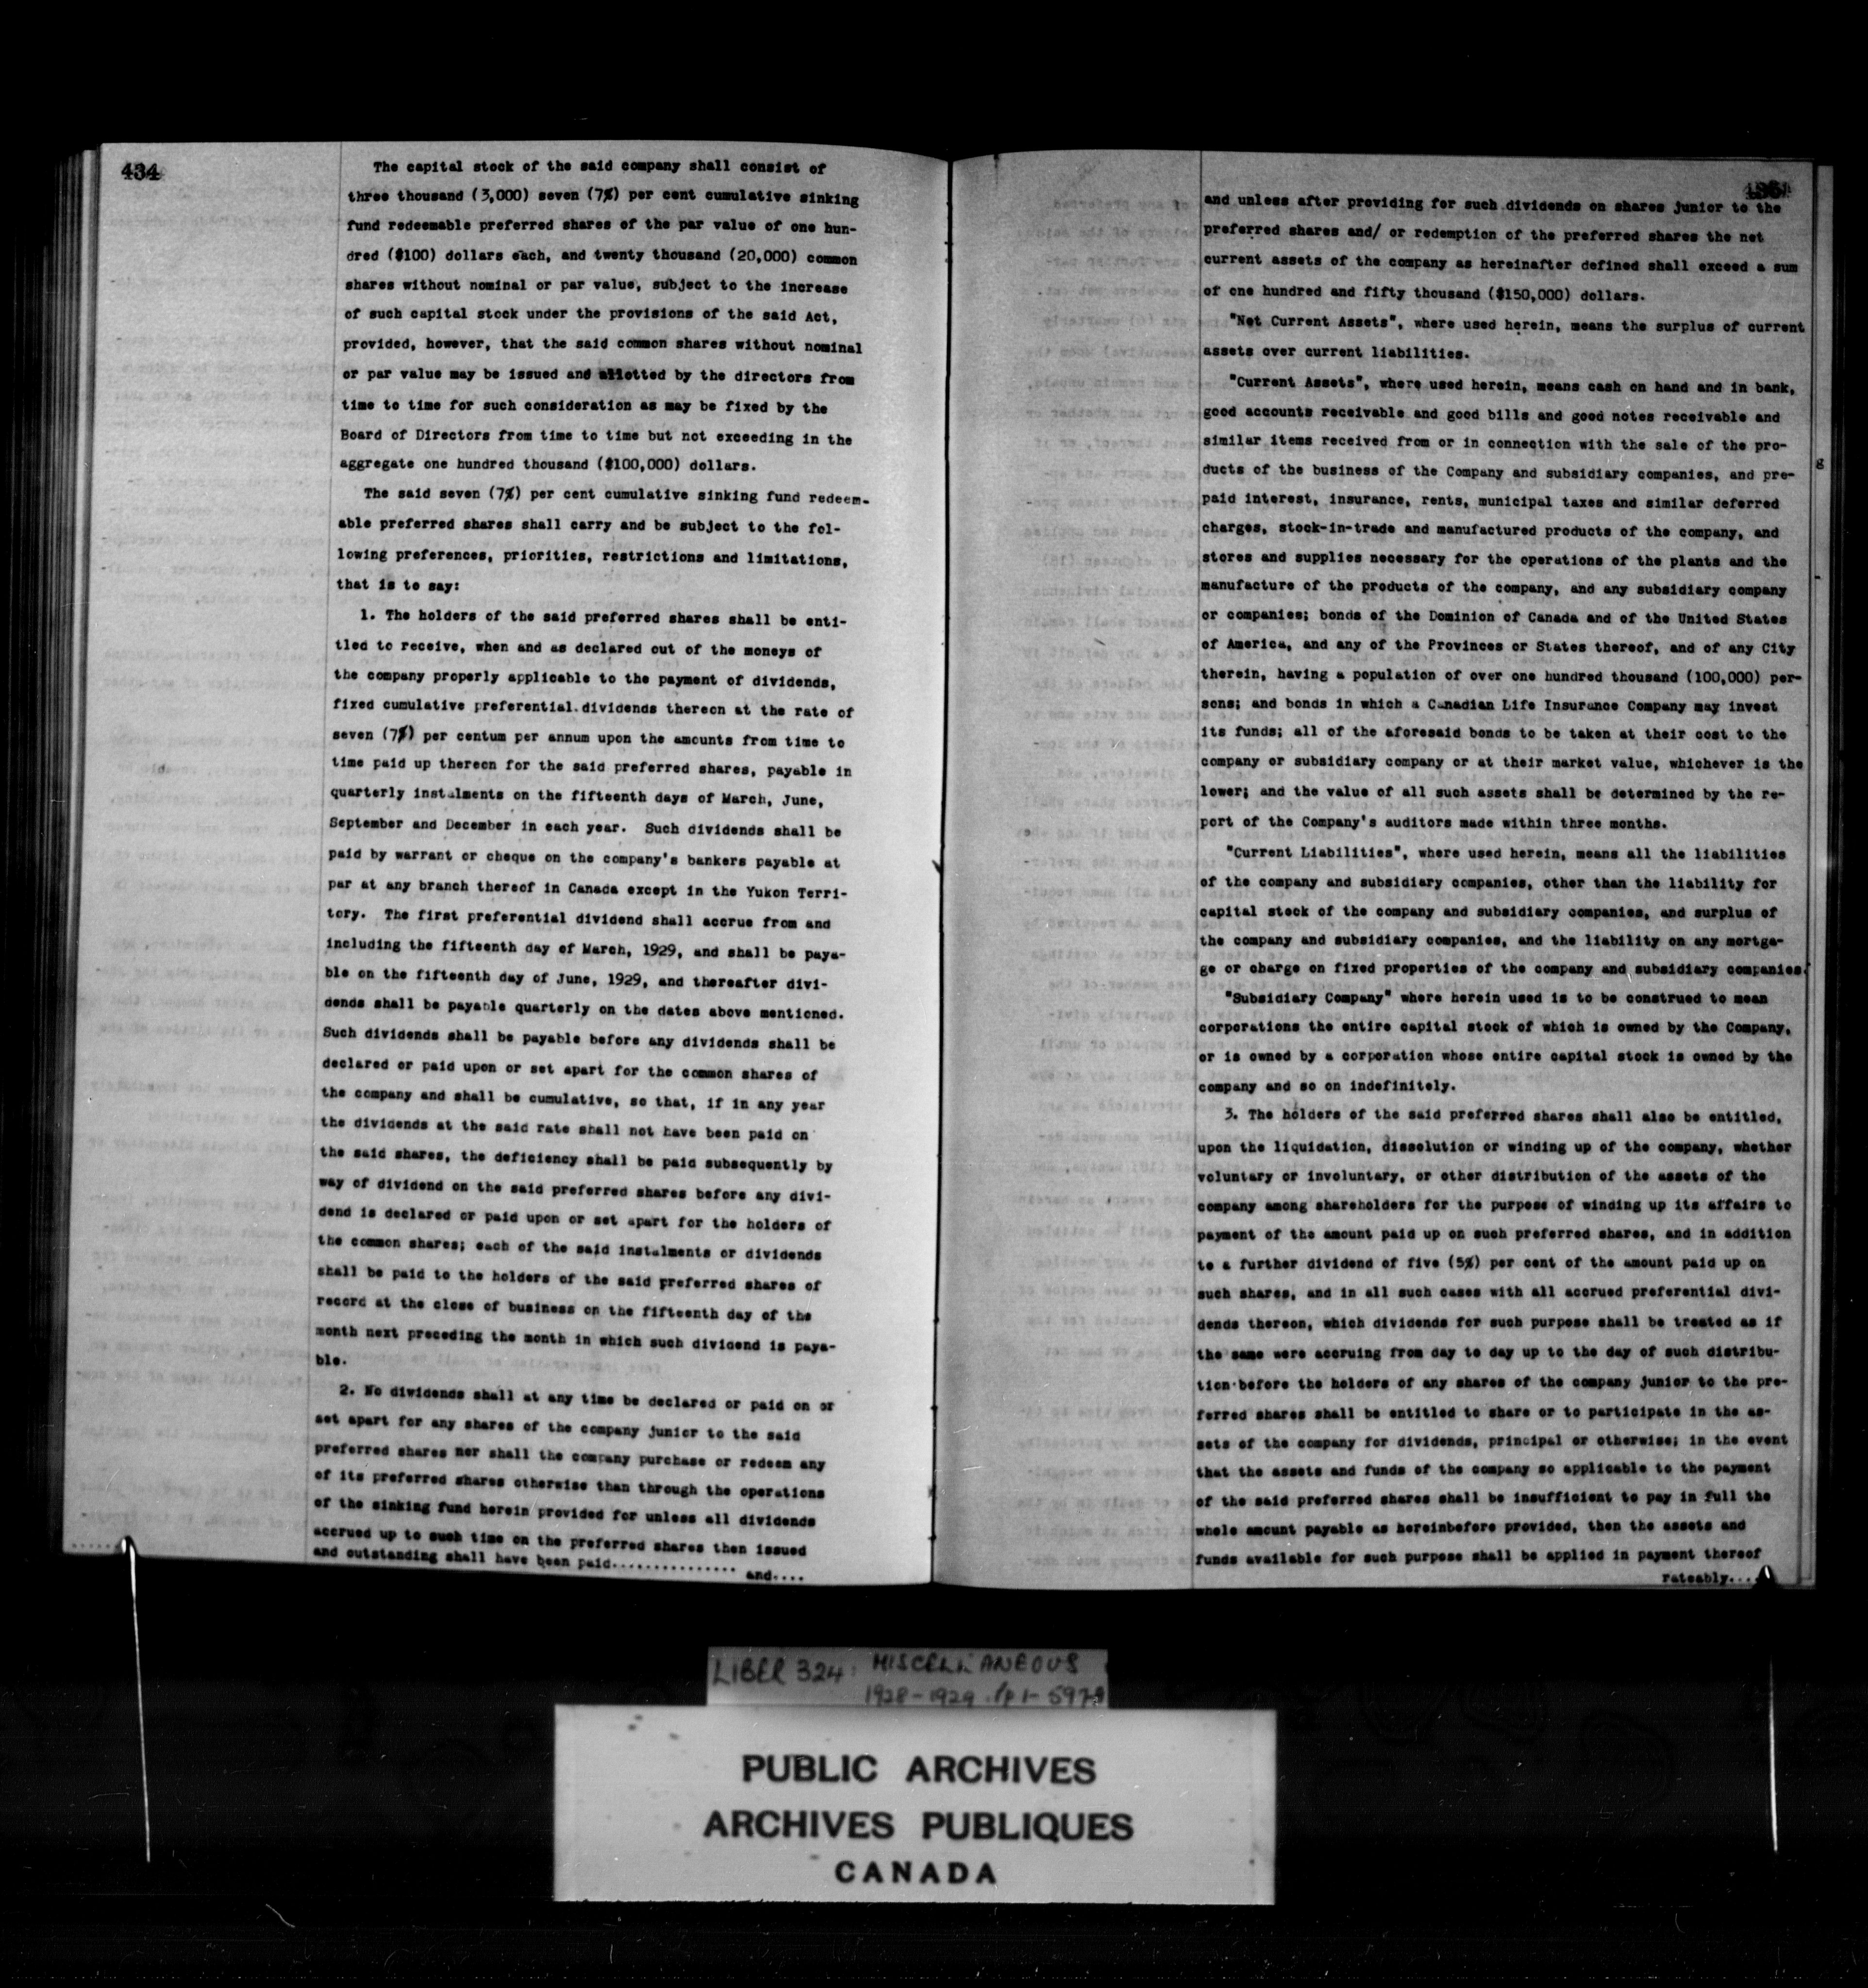 434
The capital stock of the said company shall consist of
three thousand (3,000) seven (7%) per cent cumulative sinking
fund redeemable preferred shares of the par value of one hun-
dred ($100) dollars each, and twenty thousand (20,000) common
shares without nominal or par value, subject to the increase
of such capital stock under the provisions of the said Act,
provided, however, that the said common shares without nominal
or par value may be issued and allotted by the directors from
time to time for such consideration as may be fixed by the
Board of Directors from time to time but not exceeding in the
aggregate one hundred thousand ($100,000) dollars.
The said seven (7%) per cent cumulative sinking fund redeem-
able preferred shares shall carry and be subject to the fol-
lowing preferences, priorities, restrictions and limitations,
that is to say:
1. The holders of the said preferred shares shall be enti-
tled to receive, when and as declared out of the moneys of
the company properly applicable to the payment of dividends,
fixed cumulative preferential dividends thereon at the rate of
seven (7%) per centum per annum upon the amounts from time to
time paid up thereon for the said preferred shares, payable in
quarterly instalments on the fifteenth days of March, June,
September and December in each year. Such dividends shall be
paid by warrant or cheque on the company's bankers payable at
par at any branch thereof in Canada except in the Yukon Terri-
tory. The first preferential dividend shall accrue from and
including the fifteenth day of March, 1929, and shall be paya-
ble on the fifteenth day of June, 1929, and thereafter divi-
dends shall be payable quarterly on the dates above mentioned.
Such dividends shall be payable before any dividends shall be
declared or paid upon or set apart for the common shares of
the company and shall be cumulative, so that, if in any year
the dividends at the said rate shall not have been paid on
the said shares, the deficiency shall be paid subsequently by
way of dividend on the said preferred shares before any divi-
dend is declared or paid upon or set apart for the holders of
the common shares; each of the said instalments or dividends
shall be paid to the holders of the said preferred shares of
record at the close of business on the fifteenth day of the
month next preceding the month in which such dividend is paya-
ble.
2. No dividends shall at any time be declared or paid on or
set apart for any shares of the company junior to the said
preferred shares nor shall the company purchase or redeem any
of its preferred shares otherwise than through the operations
of the sinking fund herein provided for unless all dividends
accrued up to such time on the preferred shares then issued
and outstanding shall have been paid...............
and....
and unless after providing for such dividends on shares junior to the
preferred shares and/ or redemption of the preferred shares the net
current assets of the company as hereinafter defined shall exceed a sum
of one hundred and fifty thousand ($150,000) dollars.
"Net Current Assets", where used herein, means the surplus of current
assets over current liabilities.
"Current Assets", where used herein, means cash on hand and in bank,
good accounts receivable and good bills and good notes receivable and
similar items received from or in connection with the sale of the pro-
ducts of the business of the Company and subsidiary companies, and pre-
paid interest, insurance, rents, municipal taxes and similar deferred
charges, stock-in-trade and manufactured products of the company, and
stores and supplies necessary for the operations of the plants and the
manufacture of the products of the company, and any subsidiary company
or companies; bonds of the Dominion of Canada and of the United States
of America, and any of the Provinces or States thereof, and of any City
therein, having a population of over one hundred thousand (100,000) per-
sons; and bonds in which a Canadian Life Insurance Company may invest
its funds; all of the aforesaid bonds to be taken at their cost to the
company or subsidiary company or at their market value, whichever is the
lower; and the value of all such assets shall be determined by the re-
port of the Company's auditors made within three months.
"Current Liabilities", where used herein, means all the liabilities
of the company and subsidiary companies, other than the liability for
capital stock of the company and subsidiary companies, and surplus of
the company and subsidiary companies, and the liability on any mortga-
ge or charge on fixed properties of the company and subsidiary companies.
"Subsidiary Company" where herein used is to be construed to mean
corporations the entire capital stock of which is owned by the Company,
or is owned by a corporation whose entire capital stock is owned by the
company and so on indefinitely.
3. The holders of the said preferred shares shall also be entitled,
upon the liquidation, dissolution or winding up of the company, whether
voluntary or involuntary, or other distribution of the assets of the
company among shareholders for the purpose of winding up its affairs to
payment of the amount paid up on such preferred shares, and in addition
to a further dividend of five (5%) per cent of the amount paid up on
such shares, and in all such cases with all accrued preferential divi-
dends thereon, which dividends for such purpose shall be treated as if
the same were accruing from day to day up to the day of such distribu-
tion before the holders of any shares of the company junior to the pre-
ferred shares shall be entitled to share or to participate in the as-
sets of the company for dividends, principal or otherwise; in the event
that the assets and funds of the company so applicable to the payment
of the said preferred shares shall be insufficient to pay in full the
whole amount payable as hereinbefore provided, then the assets and
funds available for such purpose shall be applied in payment thereof
rateably....
LIBER 324: MISCELLANEOUS
1928-1929
PUBLIC ARCHIVES
ARCHIVES PUBLIQUES
CANADA